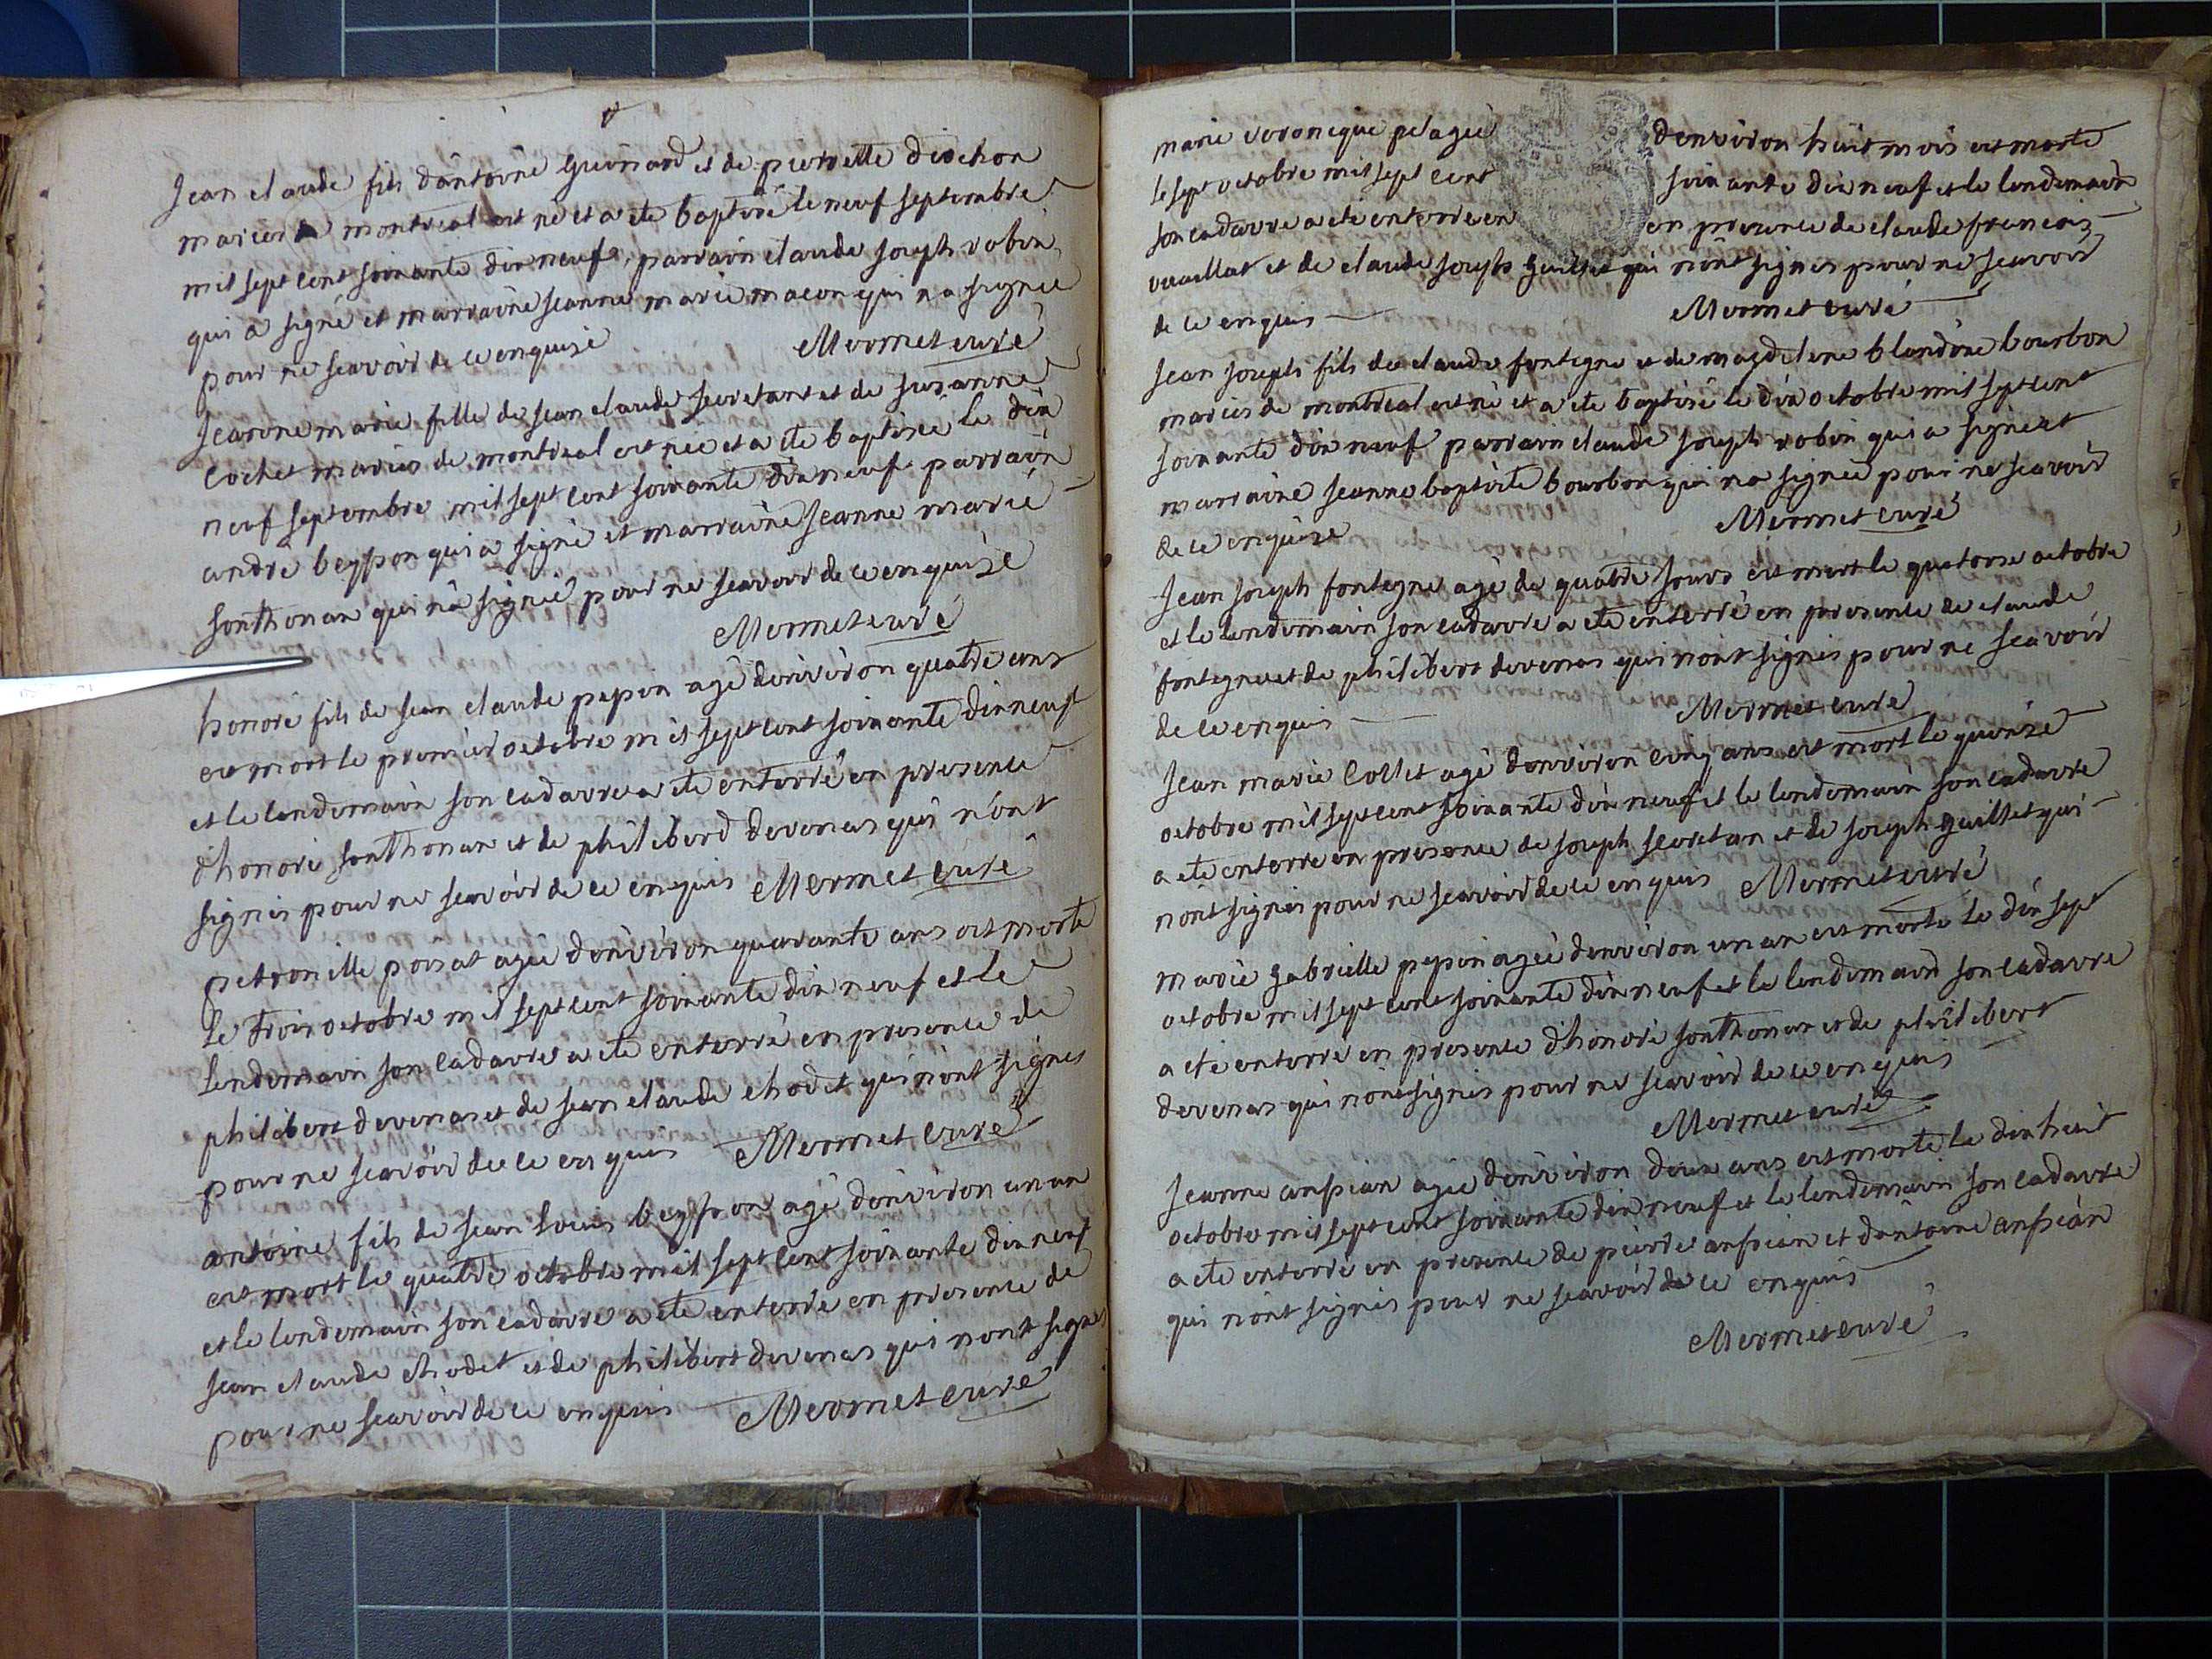 Jean claude fils dantoine Guinard et de pierrette diochon
mariés de montreal est né et a ete baptisé le neuf septembre
mil sept cent soixante dix neuf, parrain claude joseph robin
qui a signé et marraine jeanne marie macon qui na signée
pour ne scavoir de ce enquise
Mermet curé
Jeanne marie fille de jean claude secretant et de susanne
cochet mariés de montreal est née et a ete baptisée le dix
neuf septembre mil sept cent soixante dix neuf parrain
andré beysson qui a signé et marraine jeanne marie
sonthonax qui na signée pour ne scavoir de ce enquise
Mermet curé
honoré fils de jean claude pepin agé denviron quatre ans
est mort le premier octobre mil sept cent soixante dix neuf
et le lendemain son cadavre a ete enterré en presence
dhonoré sonthonax et de philiberd devenas qui n'ont
signés pour ne scavoir de ce enquis Mermet curé
petronille poisat agée denviron quarante ans est morte
le trois octobre mil sept cent soixante dix neuf et le
lendemain son cadavre a ete enterré en presence de
philibert devenas et de jean claude chodet qui n'ont signés
pour ne scavoir de ce enquis Mermet curé
antoine fils de jean louis beysson agé denviron un an
est mort le quatre octobre mil sept cent soixante dix neuf
et le lendemain son cadavre a ete enterré en presence de
jean claude chodet et de philibert devenas qui nont signés
pour ne scavoir de ce enquis Mermet curé
marie veronique pelagie denviron huit mois est morte
le sept octobre mil sept cent soixante dix neuf et le lendemain
son cadavre a ete enterré en en presence de claude francois
vuaillat et de claude joseph guillet qui n'ont signés pour ne scavoir
de ce enquis Mermet curé
Jean joseph fils de claude fontegne et de magdelene blandine bourbon
mariés de montreal est né et a ete baptisé le dix octobre mil sept cent
soixante dix neuf parrain claude joseph robin qui a signé et
marraine jeanne baptiste bourbon qui na signée pour ne scavoir
de ce enquise Mermet curé
Jean joseph fontegne agé de quatre jours est mort le quatorse octobre
et le lendemain son cadavre a ete enterré en presence de claude
fontegne et de philibert devenas qui n'ont signés pour ne scavoir
de ce enquis Mermet curé
Jean marie collet agé denviron cinq ans est mort le quinze
octobre mil sept cent soixante dix neuf et le lendemain son cadavre
a ete enterré en presence de joseph secretan et de joseph guillet qui
n'ont signés pour ne scavoir de ce enquis Mermet curé
marie gabrielle pepin agée denviron un an est morte le dix sept
octobre mil sept cent soixante dix neuf et le lendemain son cadavre
a eté enterré en presence dhonoré sonthonax et de philibert
devenas qui n'ont signés pour ne scavoir de ce enquis
Mermet curé
Jeanne anssian agée denviron deux ans est morte le dix huit
octobre mil sept cent soixante dix neuf et le lendemain son cadavre
a ete enterré en presence de pierre anssian et dantoine anssian
qui n'ont signés pour ne scavoir de ce enquis
Mermet curé